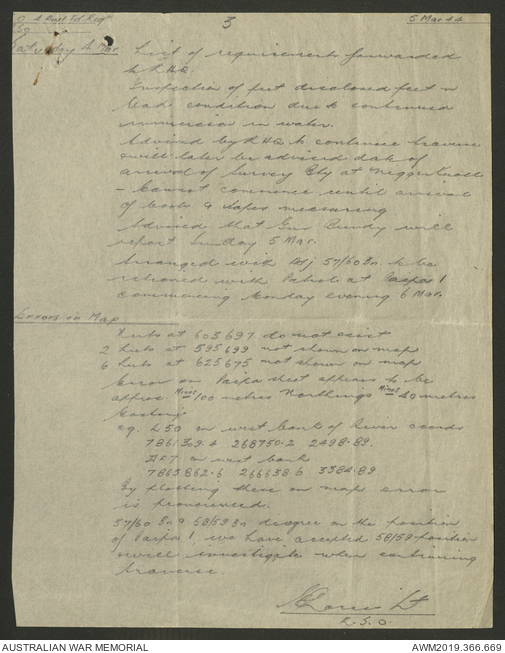 3
5 Mar 44
4 Aust Fd Regt
Saturday 4 Mar.
List of requirements forwarded
to RHQ.
Inspection of feet disclosed feet in
bad condition due to continued
immersion in water.
Advised by RHQ to continue traverse
& will later be advised date of
arrival of Survey Bty at Nigger Knoll
- cannot commence until arrival
of & tapes measuring
Advised that Gnr will
report Sunday 5 Mar.
Arranged with Adj 57/60 Bn. to be
rationed with Patrol at Paipa 1
commencing Monday evening 6 Mar.
Errors in Map
Huts at 603697 do not exist
2 huts at 595699 not shown on map
6 huts at 625675 not shown on map
Error on Paipa sheet appears to be
approx Minus 100 metres Northings Minus 40 metres
Easting
eg. L50 on west bank of River coords
268750.2 2498.89.
on west bank
7863862.6 266638.6 3384.89
By plotting these on map error
is pronounced.
57/60 Bn & 58/59 Bn disagree on the position
of Paipa 1, we have accepted 58/59 position
& will investigate when continuing
traverse.
Lt
R.S.O.
AUSTRALIAN WAR MEMORIAL
AWM2019.366.669